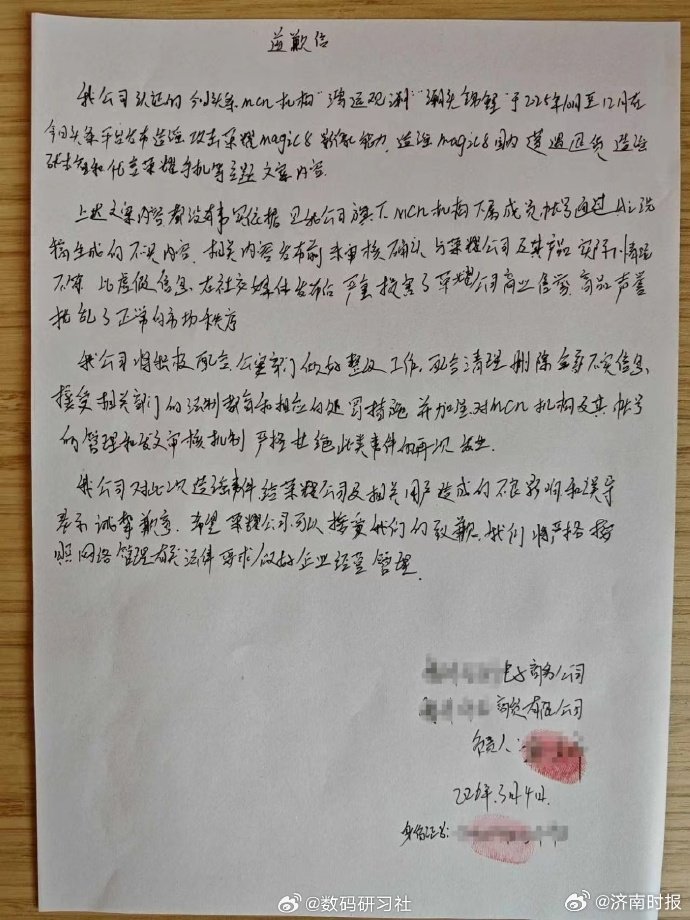 道歉信
我公司认证的今日头条MCN机构"鸿运观测""潮头锦鲤"于2025年10月至12月在
今日头条平台发布造谣攻击荣耀magic8影像能力,造谣magic8国内遭遇退货 造谣
和代言荣耀手机等主题文案内容.
上述文案内容都没有事实依据 是我公司旗下MCN机构下属成员帐号通过AI洗
稿生成的不实内容、相关内容发布前未审核确认 与荣耀公司及其产品实际情况
不符 此虚假信息 在社交媒体发布后 严重损害了荣耀公司商业信誉 商品声誉
扰乱了正常的市场秩序
我公司将积极配合公安部门做好整改工作,配合清理删除全部不实信息
接受相关部门的法制教育和相应的处罚措施 并加强对MCN机构及其帐号
的管理和发文审核机制 严格杜绝此类事件的再次发生.
我公司对此次造谣事件给荣耀公司及相关用户造成的不良影响和误导
表示诚挚歉意 希望荣耀公司可以接受我们的致歉.我们将严格按
照网络管理有关法律要求做好企业经营管理.
电子商务公司
商贸有限公司
负责人:
2026年.3月4日.
身份证号:
@数码研习社
@济南时报